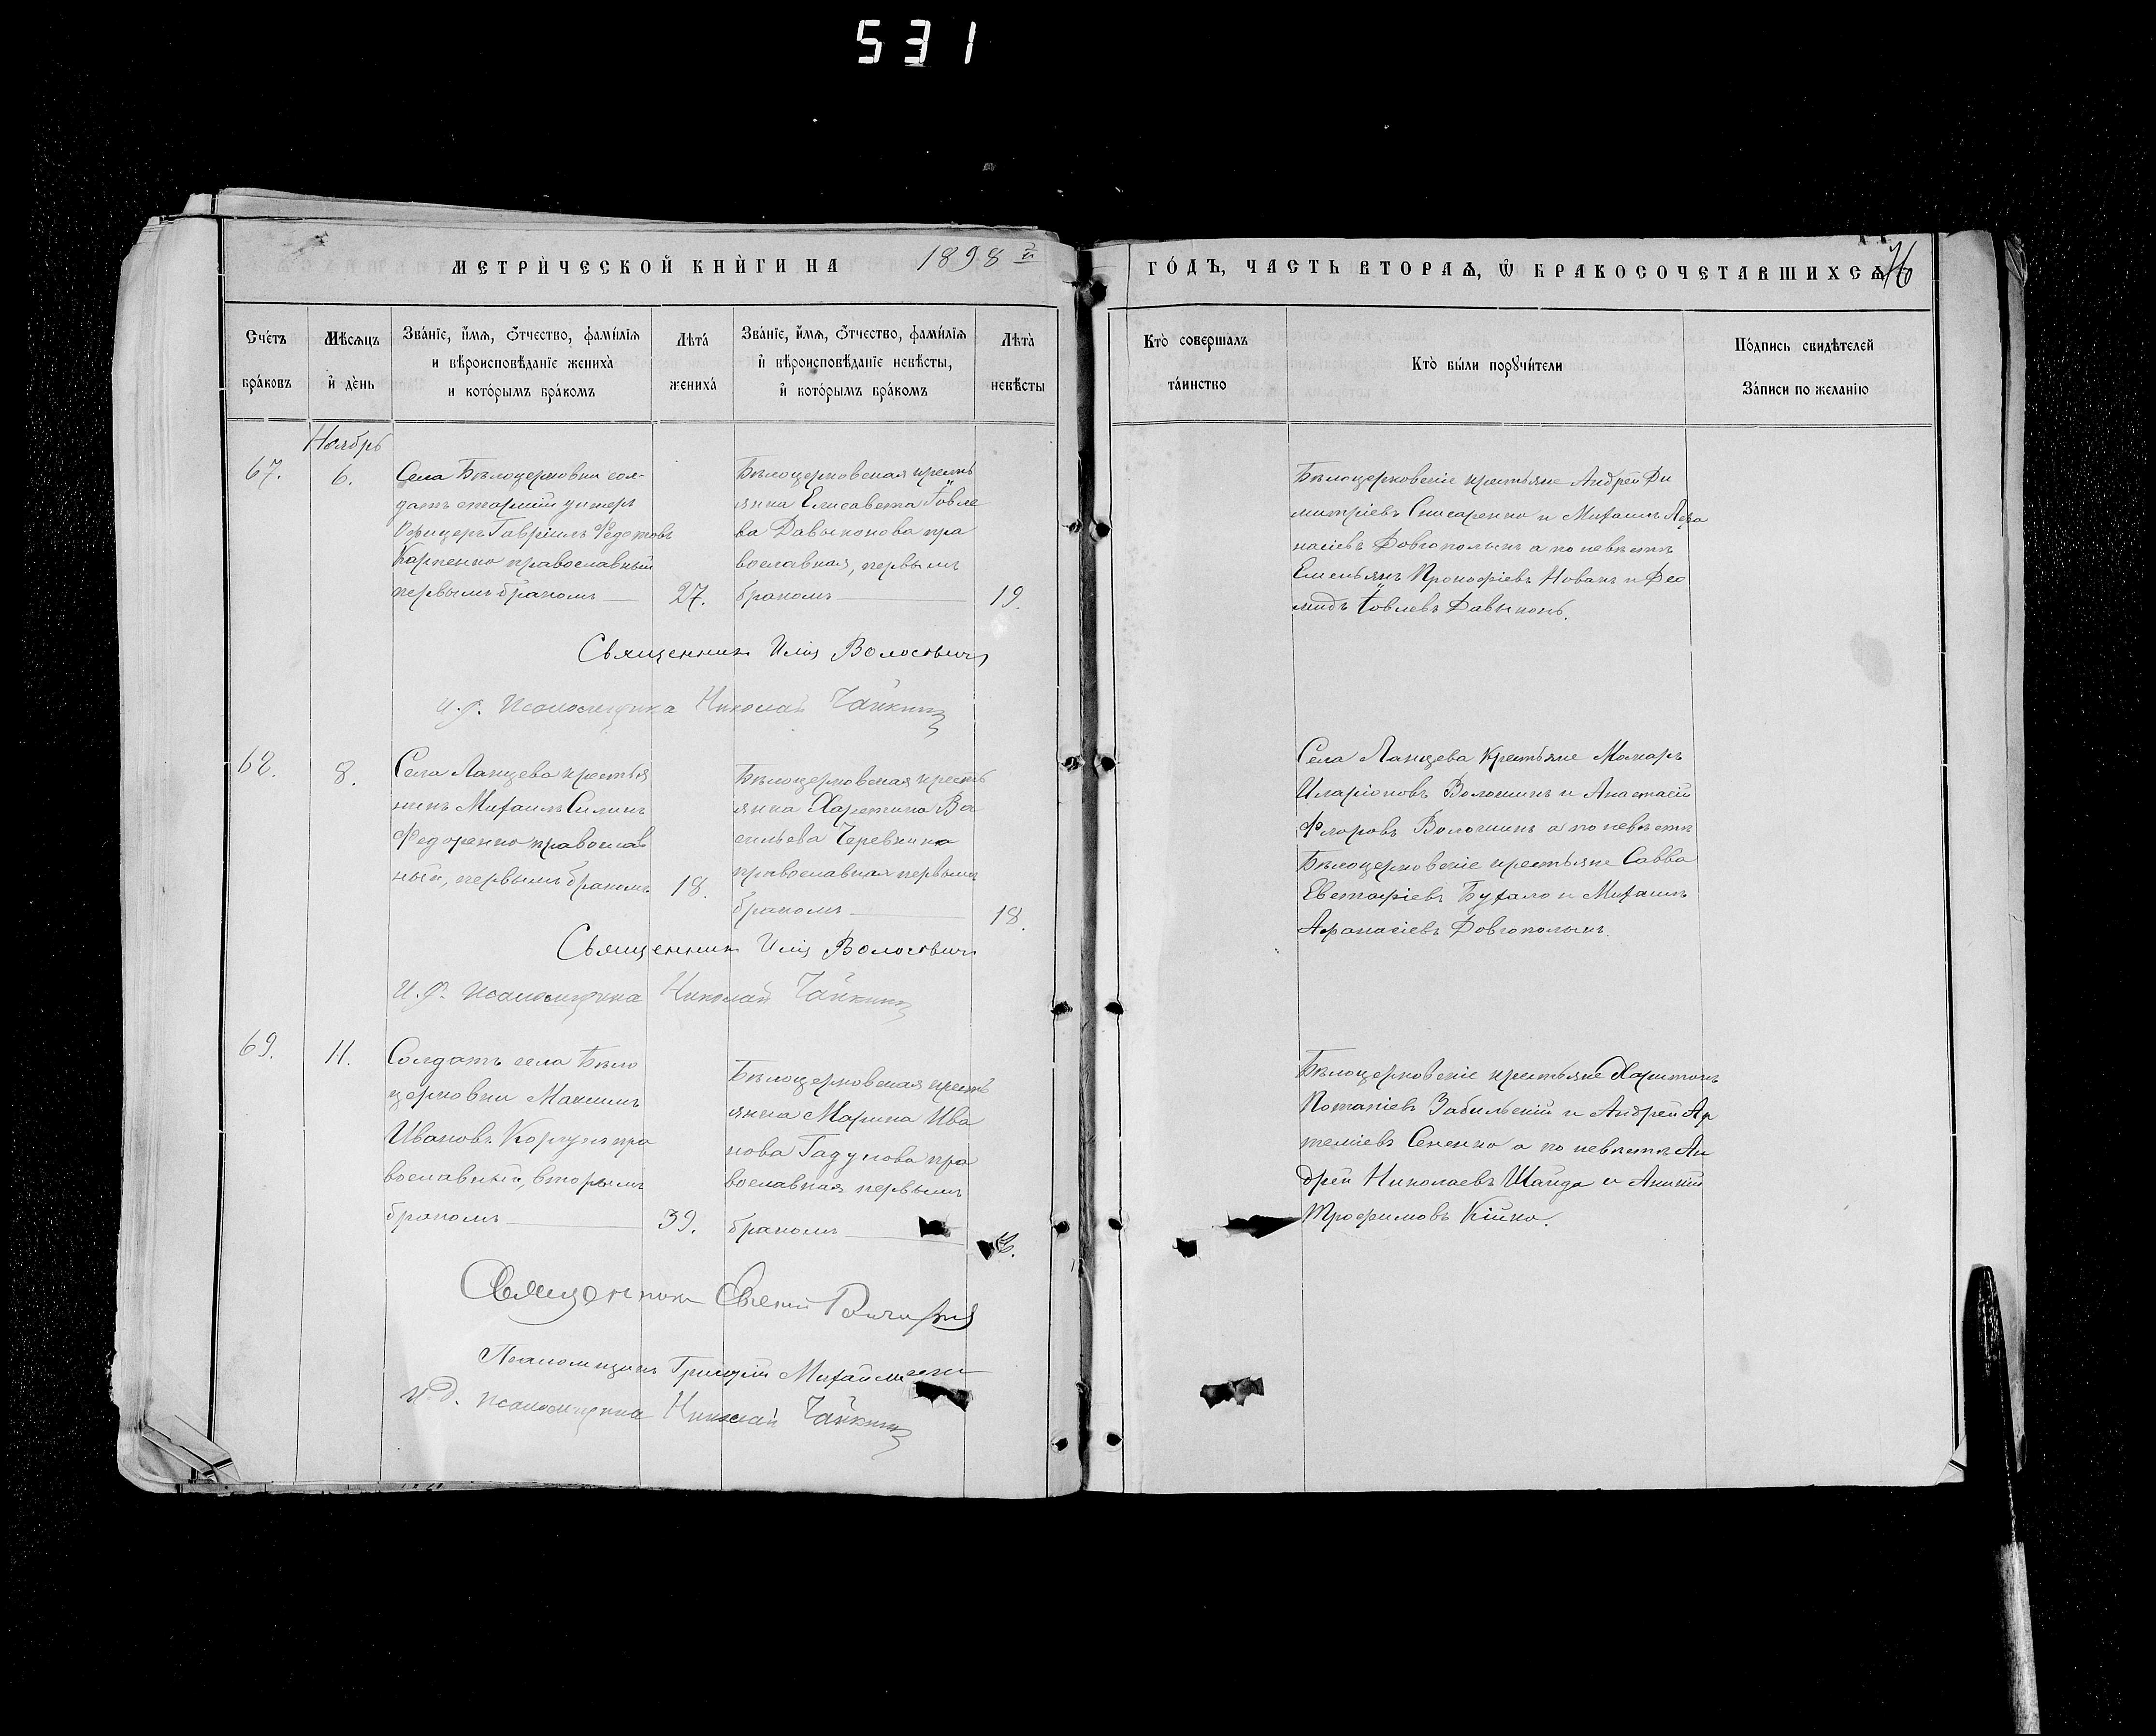 531
МЕТРИ́ЧЕСКОЙ КНИ́ГИ НА 1898 й
ГО́ДЪ, ЧАСТЬ ВТОРАѦ, Ѿ БРАКОСОЧЕТАВШИХСѦ
Сче́тъ бра́ковъ
Мѣ́сяцъ и҆ де́нь
Зва́нїе, и҆́мѧ, ѻ҆́тчество, фами́лїѧ
и вѣроисповѣ́данїе жениха̀
и кото́рымъ бра́комъ
Лѣта́ жениха́
Зва́нїе, и҆́мѧ, ѻ҆́тчество, фами́лїѧ
и҆ вѣроисповѣ́данїе невѣ́сты,
и҆ кото́рымъ бра́комъ
Лѣта̀ невѣ́сты
Кто̀ соверша́лъ
та́инство
Кто̀ бы́ли порꙋчи́тели
По́дпись свидѣ́телей
За́писи по жела́нїю
Ноябрь
67.
6.
Села Бѣлоцерковки сол-
датъ старшій унтеръ
Офицеръ Гавріилъ Федотовъ
Карпенко православный
первымъ бракомъ
27.
Бѣлоцерковская кресть
янка Елисавета Іовле
ва Давыконова пра
вославная, первымъ
бракомъ
19.
Бѣлоцерковскіе крестьяне Андрей Ди
митріевъ Слисаренко и Михаилъ Афа
насіевъ Довгополыкъ а по невѣстѣ
Емельянъ Прокофіевъ Новакъ и Део
мидъ Іовлевъ Давыконъ.
Священникъ Илія Волосовичъ
и. д. псаломщика Николай Чайкинъ
68.
8.
Села Ланцева крестья
нинъ Михаилъ Силинъ
Федоренко православ
ный, первымъ бракомъ
18.
Бѣлоцерковская кресть
янка Харитина Ва
сильева Черевкина
православная первымъ
бракомъ
18.
Села Ланцева крестьяне Макаръ
Иларіоновъ Волошинъ и Анастасій
Флоровъ Волошинъ а по невѣстѣ
Бѣлоцерковскіе крестьяне Савва
Евстафіевъ Бухало и Михаилъ
Афанасіевъ Довгополыкъ.
Священникъ Илія Волосовичъ
И. д. псаломщика Николай Чайкинъ
69.
11.
Солдатъ села Бѣло
церковки Максимъ
Ивановъ Коргунъ пра
вославный, вторымъ
бракомъ
39.
Бѣлоцерковская кресть
янка Марина Ива
нова Гадунова пра
вославная первымъ
бракомъ
Бѣлоцерковскіе крестьяне Харитонъ
Потапіевъ Забильскій и Андрей Ар
теміевъ Сененко а по невѣстѣ Ан
дрей Николаевъ Шайда и Аникій
Трофимовъ Кійко.
Священникъ Евгеній
Псаломщикъ Григорій
и д. псаломщика Николай Чайкинъ